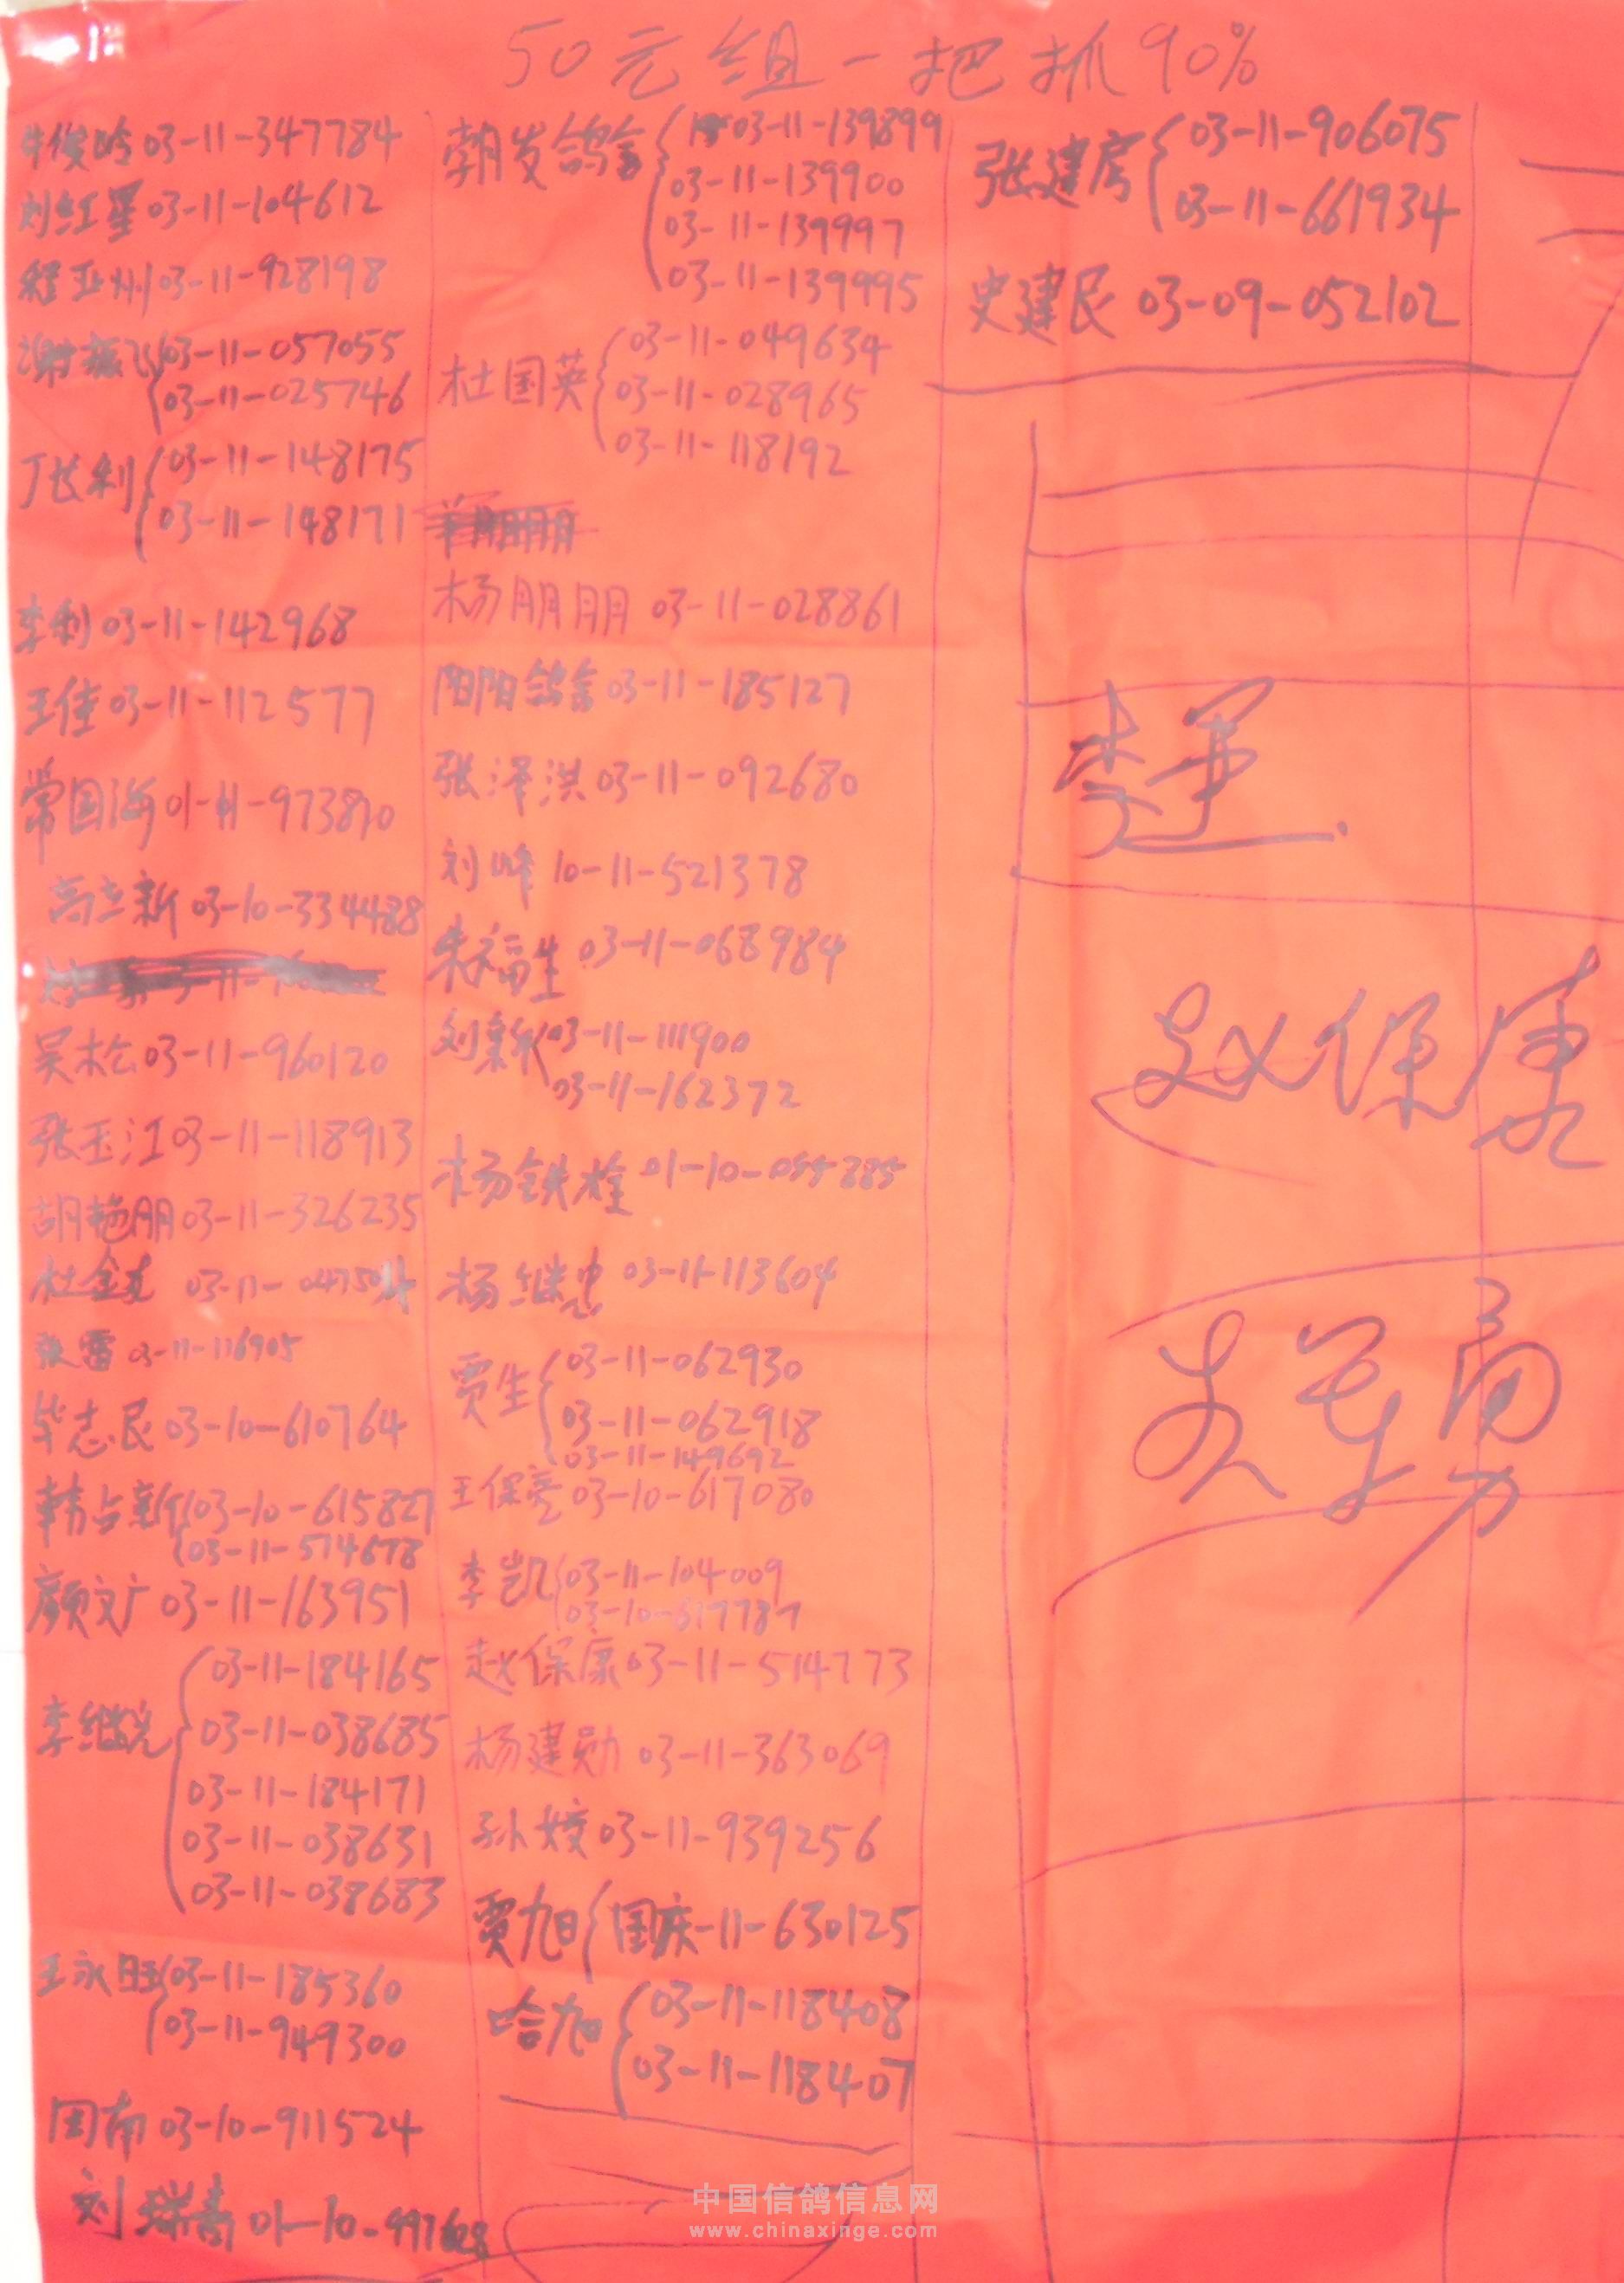 50元组一把抓90%
牛俊岭 03-11-347784
刘红星 03-11-104612
程亚州 03-11-928198
谢振飞 03-11-057055
03-11-025746
丁长利 03-11-148175
03-11-148171
李利 03-11-142968
王佳 03-11-112577
常国海 01-11-973810
高立新 03-10-334488
吴松 03-11-960120
张玉江 03-11-118913
胡艳朋 03-11-326235
杜金克 03-11-
张雷 03-11-116905
毕志民 03-10-610764
韩占新 03-10-615827
03-11-574678
颜文广 03-11-163951
李继锐 03-11-184165
03-11-038685
03-11-184171
03-11-038631
03-11-038683
王永旺 03-11-185360
03-11-949300
周南 03-10-911524
刘瑞斋 01-10-997628
朝发鸽舍 03-11-139899
03-11-139900
03-11-139997
03-11-139995
杜国英 03-11-049634
03-11-028965
03-11-118192
杨朋朋 03-11-028861
阳阳鸽舍 03-11-185127
张泽洪 03-11-092680
刘峰 10-11-521378
朱福生 03-11-068984
刘新 03-11-111900
03-11-162372
杨铁栓 01-10-
杨继忠 03-11-113604
贾生 03-11-062930
03-11-062918
03-11-149692
王保亮 03-10-617080
李凯 03-11-104009
03-10-617787
赵保康 03-11-514773
杨建勋 03-11-363069
孙姣 03-11-939256
贾旭 国庆-11-630125
哈旭 03-11-118408
03-11-118407
张建房 03-11-906075
03-11-661934
史建民 03-09-052102
李军
赵保康
中国信鸽信息网
www.chinaxinge.com